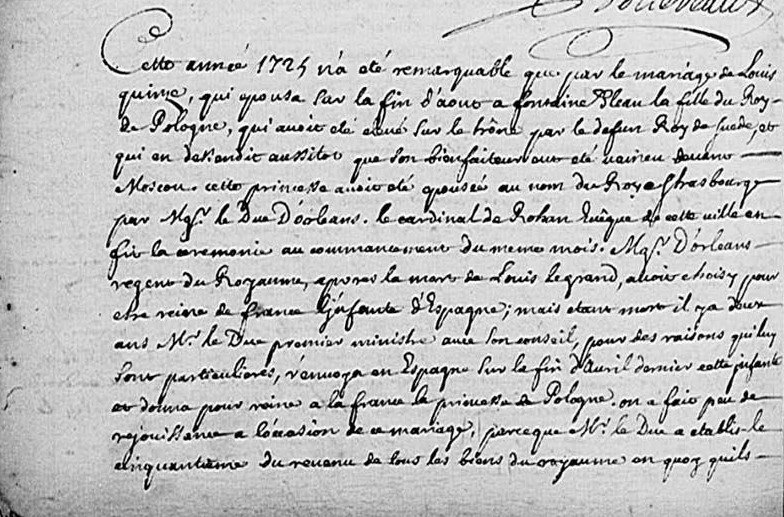 Cette année 1725 n'a été remarquable que par le mariage de Louis
quinze, qui epousa sur la fin d'aout a fontainebleau la fille du Roy
de Pologne, qui avoit eté elevé sur le trône par le defun Roy de suede, et
qui en dessendit aussitot que son bienfaiteur eut eté vaincu devant
Moscou. cette princesse avoit eté epousée au nom du Roy a Strasbourg
par Mgr. le Duc D'orleans. le cardinal de Rohan Evêque de cette ville en
fit la ceremonie au commancement du meme mois. Mgr. D'orleans
regent du Royaume, apres la mort de Louis le grand, avoit choisy pour
etre reine de france l'jnfante d'Espagne; mais etant mort il y a deux
ans Mr. le Duc premier ministre avec son conseil, pour des raisons qui luy
sont particulieres, r'envoya en Espagne sur la fin d'Avril dernier cette jnfante
et donna pour reine a la france la princesse de Pologne. on a fait peu de
rejouissance a l'occasion de ce mariage, parceque Mr. le Duc a etabli le
cinquantieme du revenu de tous les biens du royaume en quoy qu'ils